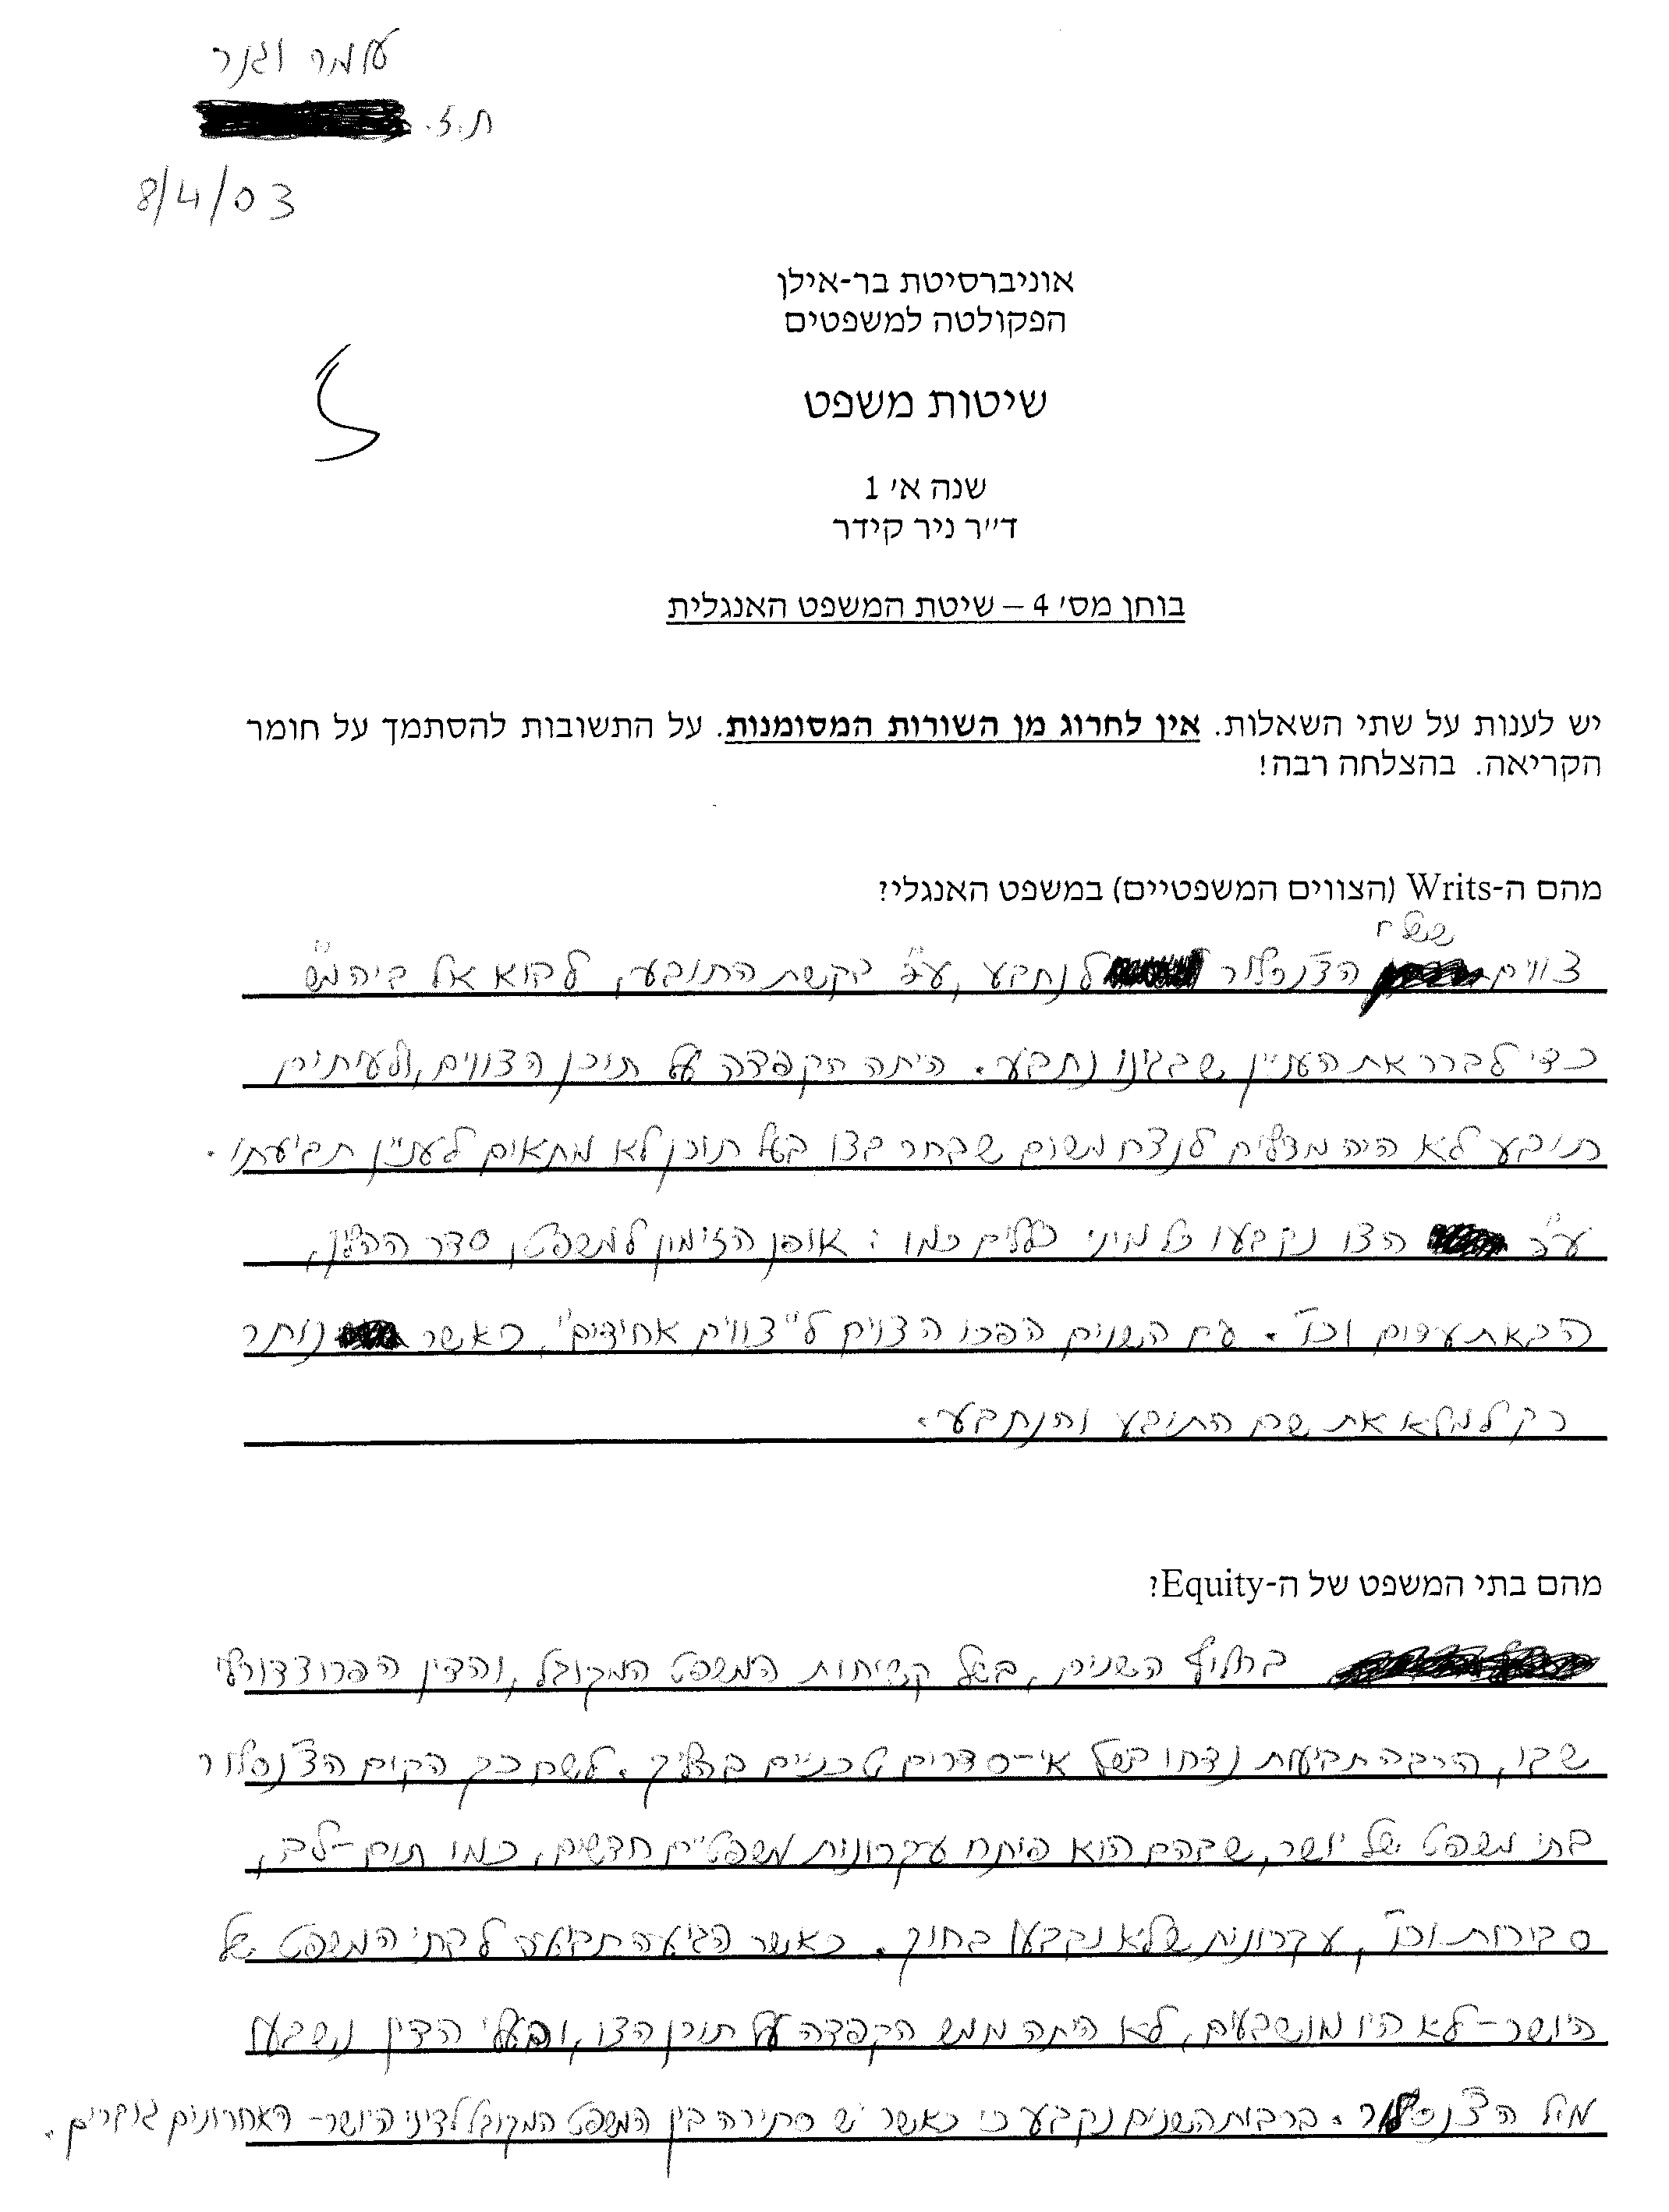 עומר וגנר
ת.ז.
8/4/03
אוניברסיטת בר-אילן
הפקולטה למשפטים
שיטות משפט
שנה א' 1
ד"ר ניר קידר
בוחן מס' 4 – שיטת המשפט האנגלית
יש לענות על שתי השאלות. אין לחרוג מן השורות המסומנות. על התשובות להסתמך על חומר
הקריאה. בהצלחה רבה!
מהם ה-Writs (הצווים המשפטיים) במשפט האנגלי?
ששלח
צווים הצ'נסלור לנתבע, ע"פ בקשת התובע, לבוא אל ביהמ"ש
כדי לברר את העניין שבגינו נתבע. היתה הקפדה על תוכן הצווים, ולעיתים
תובע לא היה מצליח לנצח משום שבחר בצו בעל תוכן לא מתאים לעניין תביעתו.
ע"פ הצו נקבעו כל מיני כללים כמו: אופן הזימון למשפט, סדר ההליך,
הבאת עדים וכו'. עם השנים הפכו הצווים ל"צווים אחידים", כאשר נותר
רק למלא את שם התובע והנתבע.
מהם בתי המשפט של ה-Equity?
בחלוף השנים, בשל קשיחות המשפט המקובל, והדין הפרוצדורלי
שבו, הרבה תביעות נדחו בשל אי-סדרים טכניים בהליך. לשם כך הקים הצ'נסלור
בתי משפט של יושר, שבהם הוא פיתח עקרונות משפטיים חדשים, כמו תום-לב,
סבירות וכו', עקרונות שלא נקבעו בחוק. כאשר הגיעה תביעה לבתי המשפט של
היושר - לא היו מושבעים, לא היתה ממש הקפדה על תוכן הצו, ובעלי הדין נשבעו
מול הצ'נסלור. ברבות השנים נקבע כי כאשר יש סתירה בין המשפט המקובל לדיני היושר - האחרונים גוברים.